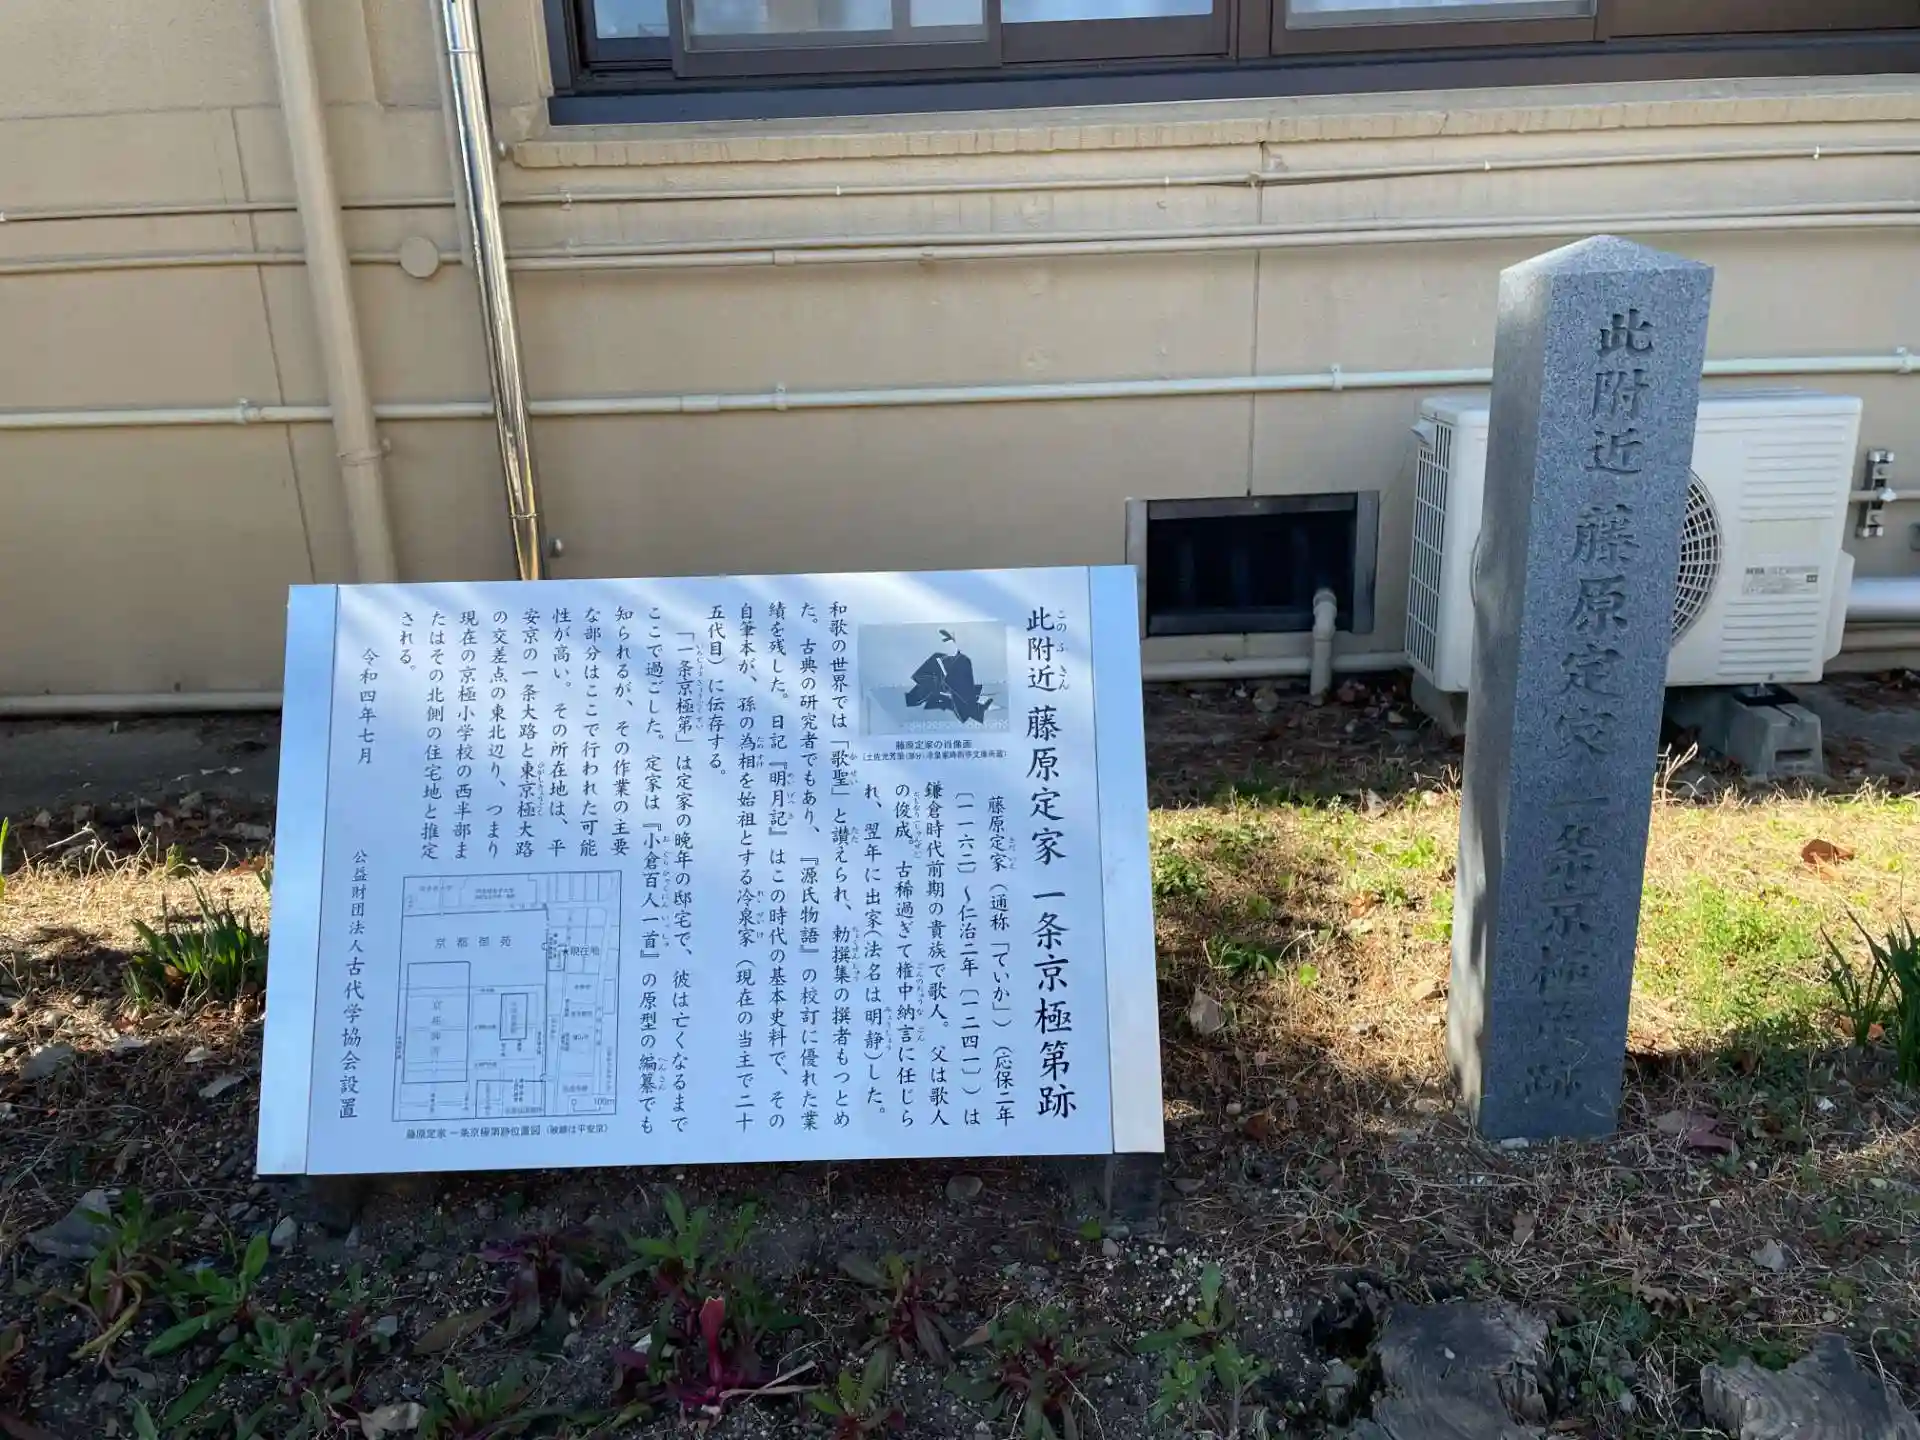 此附近 藤原定家 一条京極第跡
藤原定家（通称「ていか」）（応保二年
〔一一六二〕～仁治二年〔一二四一〕）は
鎌倉時代前期の貴族で歌人。父は歌人
の俊成。古稀過ぎて権中納言に任じら
れ、翌年に出家（法名は明静）した。
和歌の世界では「歌聖」と讃えられ、勅撰集の撰者もつとめ
た。古典の研究者でもあり、『源氏物語』の校訂に優れた業
績を残した。日記『明月記』はこの時代の基本史料で、その
自筆本が、孫の為相を始祖とする冷泉家（現在の当主で二十
五代目）に伝存する。
「一条京極第」は定家の晩年の邸宅で、彼は亡くなるまで
ここで過ごした。定家は『小倉百人一首』の原型の編纂でも
知られるが、その作業の主要
な部分はここで行われた可能
性が高い。その所在地は、平
安京の一条大路と東京極大路
の交差点の東北辺り、つまり
現在の京極小学校の西半部ま
たはその北側の住宅地と推定
される。
令和四年七月
公益財団法人古代学協会設置
藤原定家の肖像画
京都御苑
★現在地
0 100m
藤原定家 一条京極第跡位置図（破線は平安京）
此附近 藤原定家 一条京極第跡